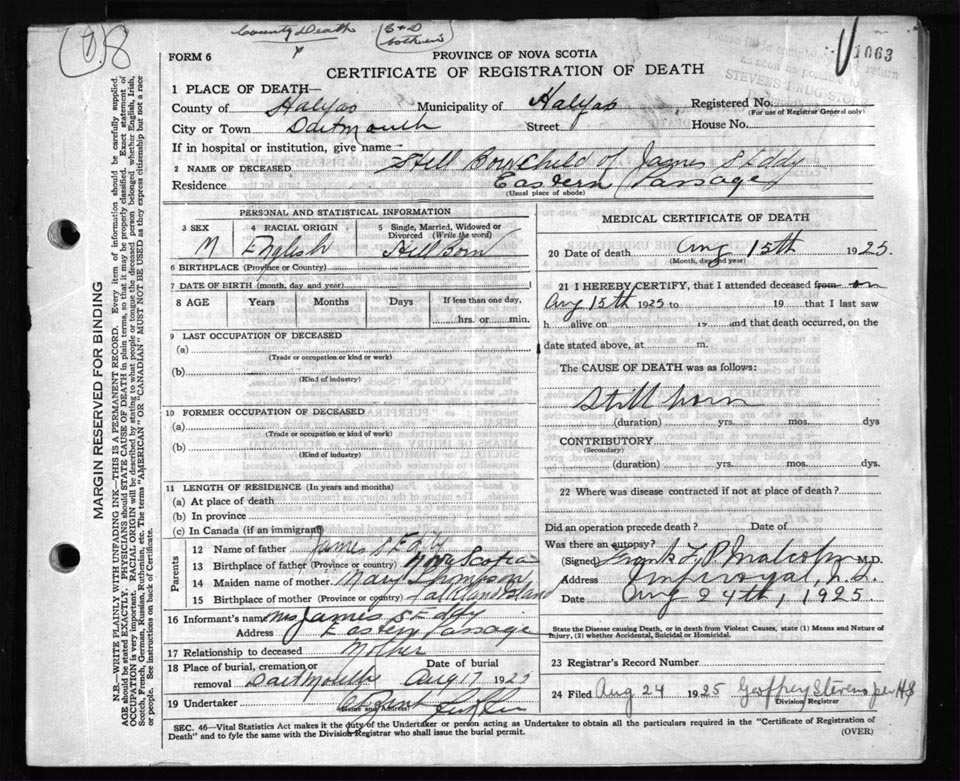 County Death
1063
FORM 6
PROVINCE OF NOVA SCOTIA
CERTIFICATE OF REGISTRATION OF DEATH
1 PLACE OF DEATH—
County of Halyfas Municipality of Halyfas Registered No.
(For use of Registrar General only)
City or Town Dartmouth Street House No.
If in hospital or institution, give name
2 NAME OF DECEASED Still Born Child of James S Eddy
Residence Eastern Passage
(Usual place of abode)
PERSONAL AND STATISTICAL INFORMATION
3 SEX M
4 RACIAL ORIGIN English
5 Single, Married, Widowed or Divorced (Write the word) Still Born
6 BIRTHPLACE (Province or Country)
7 DATE OF BIRTH (month, day and year)
8 AGE Years Months Days If less than one day, hrs. or min.
9 LAST OCCUPATION OF DECEASED
(a)
(Trade or occupation or kind of work)
(b)
(Kind of industry)
10 FORMER OCCUPATION OF DECEASED
(a)
(Trade or occupation or kind of work)
(b)
(Kind of industry)
11 LENGTH OF RESIDENCE (In years and months)
(a) At place of death
(b) In province
(c) In Canada (if an immigrant)
Parents
12 Name of father James S Eddy
13 Birthplace of father (Province or country) Nova Scotia
14 Maiden name of mother Mary Thompson
15 Birthplace of mother (Province or country) Falkland Island
16 Informant's name Mrs James S Eddy
Address Eastern Passage
17 Relationship to deceased Mother
18 Place of burial, cremation or removal Dartmouth Date of burial Aug 17 1925
19 Undertaker
(Name and Address)
MEDICAL CERTIFICATE OF DEATH
20 Date of death Aug 15th 1925.
(Month, day and year)
21 I HEREBY CERTIFY, that I attended deceased from on
Aug 15th 1925 to 19 that I last saw
h alive on 19 and that death occurred, on the
date stated above, at m.
The CAUSE OF DEATH was as follows:
Still born
(duration) yrs. mos. dys
CONTRIBUTORY
(Secondary)
(duration) yrs. mos. dys.
22 Where was disease contracted if not at place of death?
Did an operation precede death? Date of
Was there an autopsy?
(Signed) Frank V. P. Malcolm M.D.
Address Imperoyal, N.S.
Date Aug 24th, 1925.
State the Disease causing Death, or in death from Violent Causes, state (1) Means and Nature of
Injury, (2) whether Accidental, Suicidal or Homicidal.
23 Registrar's Record Number
24 Filed Aug 24 1925 Geoffrey Stevens per H S
Division Registrar
SEC. 46—Vital Statistics Act makes it the duty of the Undertaker or person acting as Undertaker to obtain all the particulars required in the "Certificate of Registration of
Death" and to fyle the same with the Division Registrar who shall issue the burial permit.
(OVER)
MARGIN RESERVED FOR BINDING
N.B.—WRITE PLAINLY WITH UNFADING INK—THIS IS A PERMANENT RECORD. Every item of information should be carefully supplied.
AGE should be stated EXACTLY. PHYSICIANS should STATE CAUSE OF DEATH in plain terms, so that it may be properly classified. Exact statement of
OCCUPATION is very important. RACIAL ORIGIN will be described by stating to what people or tongue the deceased person belonged whether English, Irish,
Scotch, French, German, Russian, Ruthenian, etc. The terms "AMERICAN" OR "CANADIAN" MUST NOT BE USED as they express citizenship but not a race
or people. See instructions on back of Certificate.